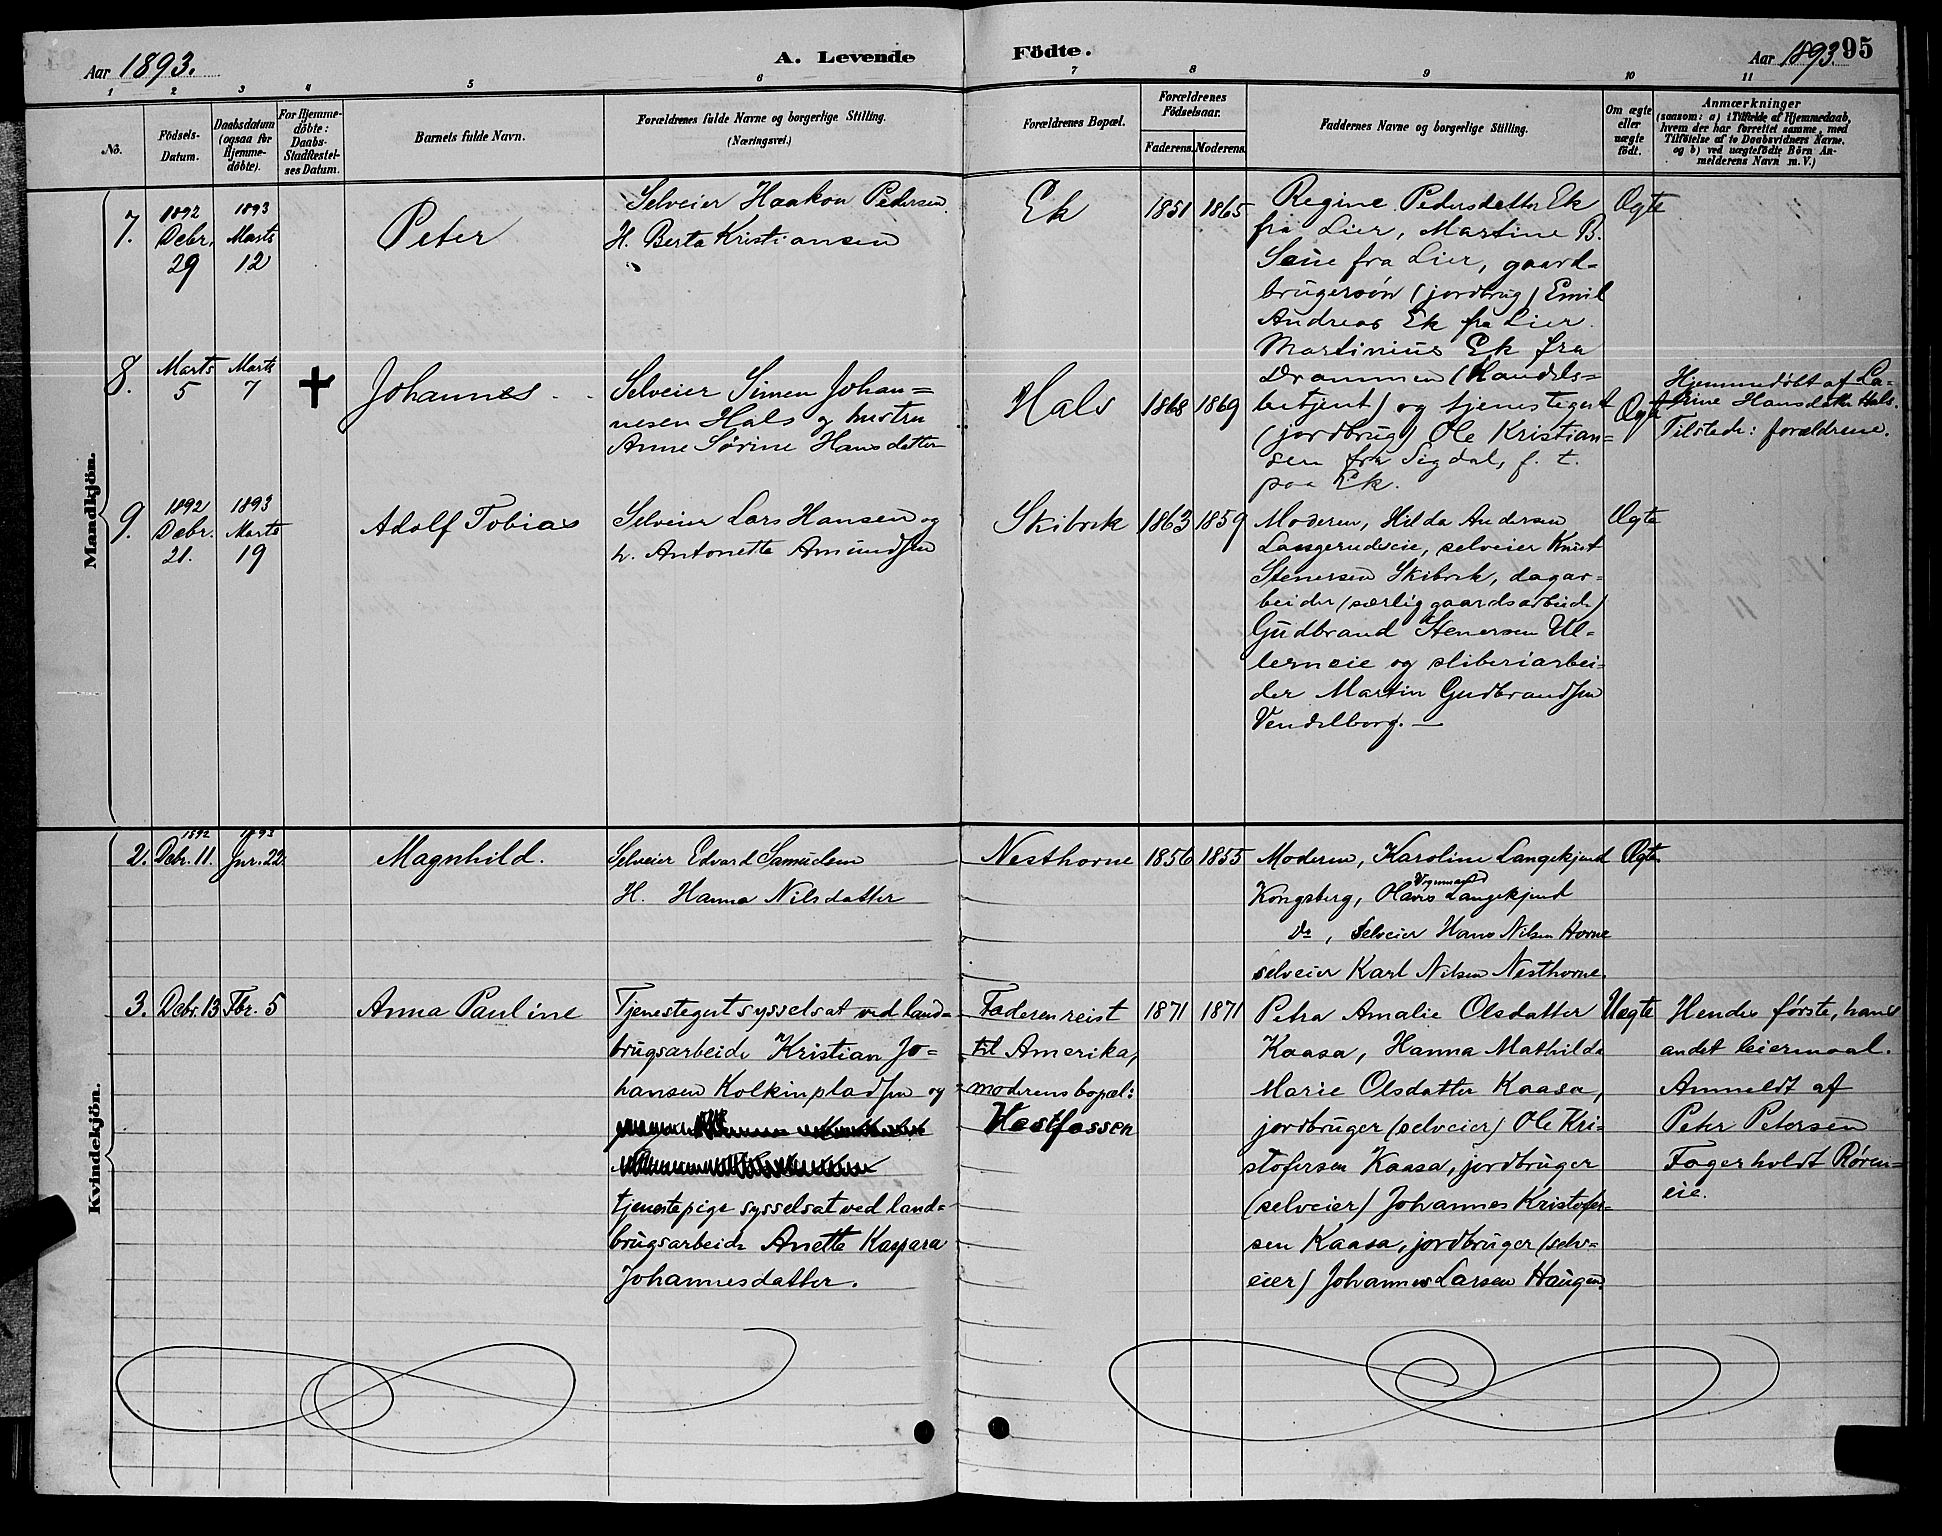 Aar 1893.
A. Levende
Födte.
Aar 1893.
95
1 2 3 4 5 6 7 8 9 10 11
No.
Födsels-
Datum.
Daabsdatum
(ogsaa for
Hjemme-
döbte).
For Hjemme-
döbte:
Daabs-
Stadfæstel-
ses Datum.
Barnets fulde Navn.
Forældrenes fulde Navne og borgerlige Stilling.
(Næringsvei.)
Forældrenes Bopæl.
Forældrenes
Födselsaar.
Faderens. Moderens.
Faddernes Navne og borgerlige Stilling.
Om ægte
eller
uægte
födt.
Anmærkninger
(saasom: a) i Tilfælde af Hjemmedaab,
hvem der har forrettet samme, med
Tilföielse af to Daabsvidners Navne,
og b) ved uægtefödte Börn An-
melderens Navn m. V.)
Mandkjön.
7.
1892
Debr.
29
1893
Marts
12
Peter
Selveier Haakon Pedersen
H. Berte Kristiansen
Ek
1851
1865
Regine Pedersdatter Ek
fra Lier, Martine B.
fra Lier, gaard-
brugersön (jordbrug) Emil
Andreas Ek fra Lier.
Martinius Ek fra
Drammen (Handels-
betjent) og tjenestegut
(jordbrug) Ole Kristian-
sen fra Sigdal, f. t.
paa Ek.
Ægte
8.
Marts
5
Marts
7
Johannes
Selveier Simen Johan-
nesen Hals og hustru
Anne Sørine Hansdatter
Hals
1868
1869
Ægte
Hjemmedöbt af La-
Hansdatter Hals.
Tilstede: forældrene.
9.
1892
Debr.
21.
1893
Marts
19
Adolf Tobias
Selveier Lars Hansen og
h. Antonette Amundsen
Skibrek
1863
1859
Moderen, Hilda Andersen
selveier Knut
Stenersen Skibrek, dagar-
beider (særlig gaardsarbeide)
Gudbrand Stenersen Ul-
lerneie og sliberiarbei-
der Martin Gudbrandsen
Vendelborg.
Ægte
Kvindekjön.
2.
1892
Debr. 11.
1893
Jnr. 22.
Magnhild.
Selveier Edvard Samuelsen
H. Hanna Nilsdatter
Nesthorne
1856
1855
Moderen, Karoline Langekjend
Kongsberg, Olavus Langekjend
Do, Selveier Hans Nilsen Horne
selveier Karl Nilsen Nesthorne.
Ægte
3.
Debr. 13
Fbr. 5
Anna Pauline
Tjenestegut sysselsat ved land-
brugsarbeide Kristian Jo-
hansen Kolkinpladsen og
tjenestepige sysselsat ved land-
brugsarbeide Anette Kaspara
Johannesdatter.
Faderen reist
til Amerika,
moderens bopæl:
Hestfossen
1871
1871
Petra Amalie Olsdatter
Kaasa, Hanna Mathilde
Marie Olsdatter Kaasa,
jordbruger (selveier) Ole Kri-
stofersen Kaasa, jordbruger
(selveier) Johannes Kristofer-
sen Kaasa, jordbruger (selv-
eier) Johannes Larsen Haugen.
Uægte
Hendes første, hans
andet leiermaal.
Anmeldt af
Peter Petersen
Fagerholdt Røren-
eie.